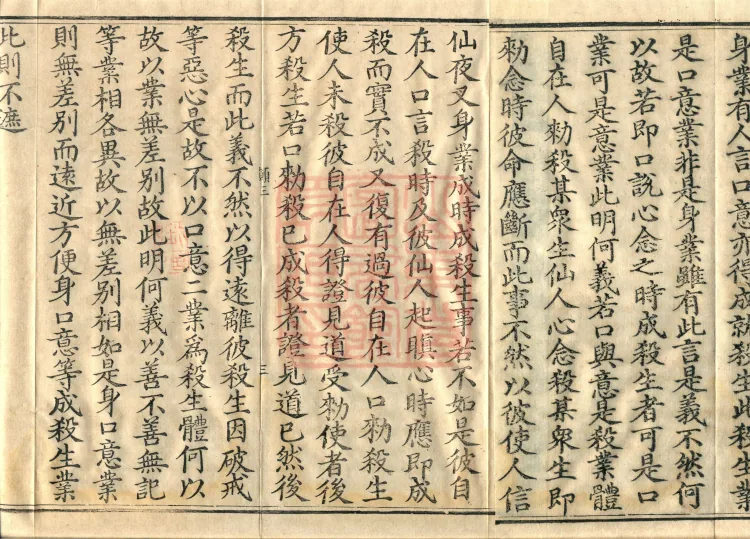 身業有人言口意亦得成就殺生此殺生業
是口意業非是身業雖有此言是義不然何
以故若即口說心念之時成殺生者可是口
業可是意業此明何義若口與意是殺業體
自在人勑殺某衆生仙人心念殺某衆生即
勑念時彼命應斷而此事不然以彼使人信
仙夜叉身業成時成殺生事若不如是彼自
在人口言殺時及彼仙人起瞋心時應即成
殺而實不成又復有過彼自在人口勑殺生
使人未殺彼自在人得證見道受勑使者後
方殺生若口勑殺已成殺者證見道已然後
殺生而此義不然以得遠離彼殺生因破戒
等惡心是故不以口意二業爲殺生體何以
故以業無差別故此明何義以善不善無記
等業相各異故以無差別相如是身口意業
則無差別而遠近方便身口意等成殺生業
此則不遮